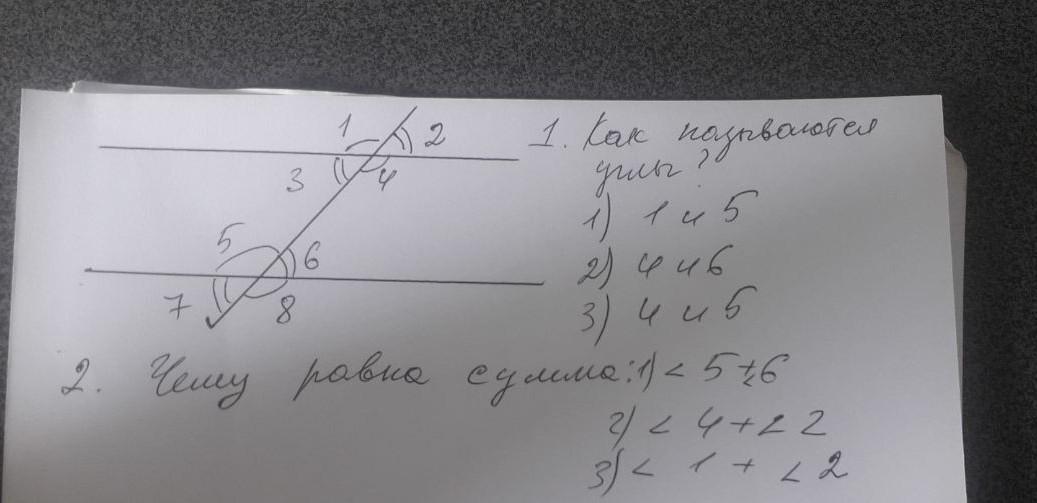 1 2
3 4
5 6
7 8
1. Как называются
углы?
1) 1 и 5
2) 4 и 6
3) 4 и 5
2. Чему равна сумма: 1) < 5 + < 6
2) < 4 + < 2
3) < 1 + < 2